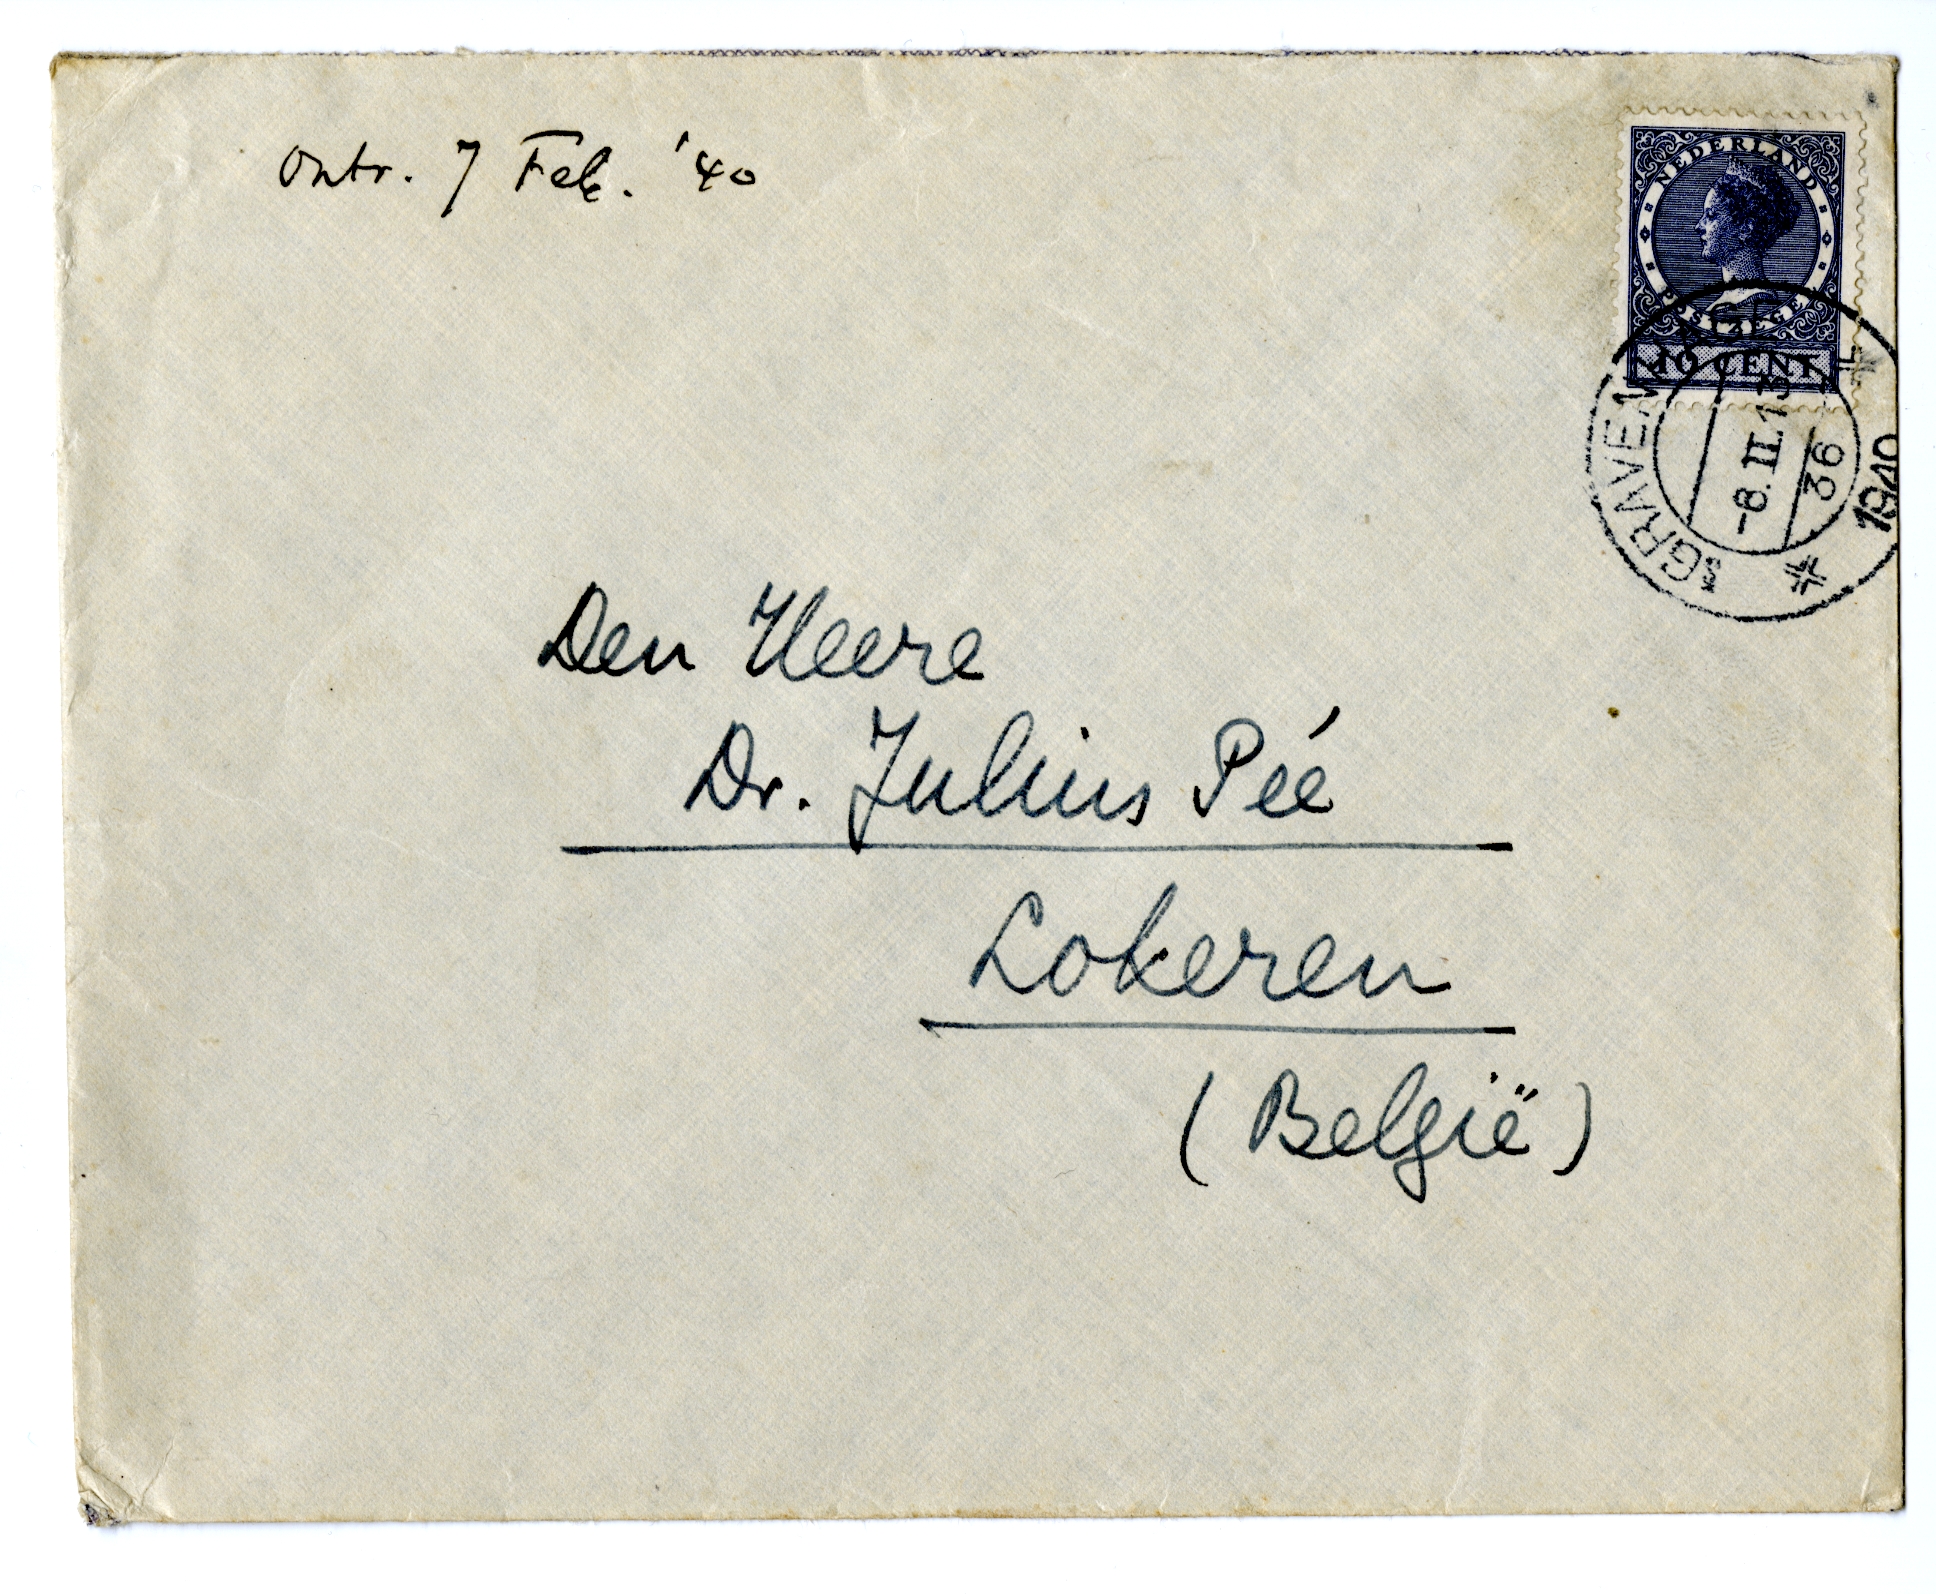 Ontr. 7 Feb. '40
NEDERLAND
POSTZEGEL
10 CENT
'SGRAVENHAGE
-8.II.13
36
1940
Den Heere
Dr. Julius Péé
Lokeren
(België)